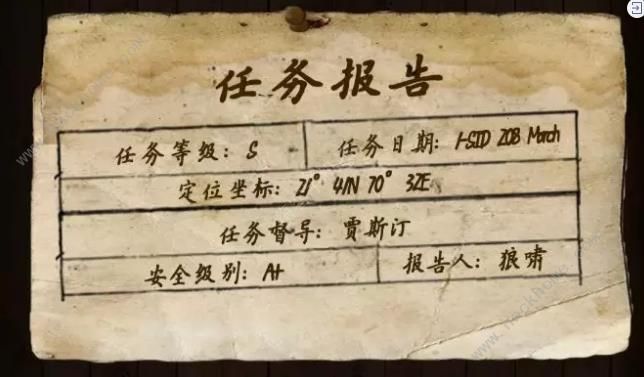 任务报告
任务等级：S 任务日期：1-SJD 20B March
定位坐标：21° 41N 70° 32E
任务督导：贾斯汀
安全级别：A+ 报告人：狼啸